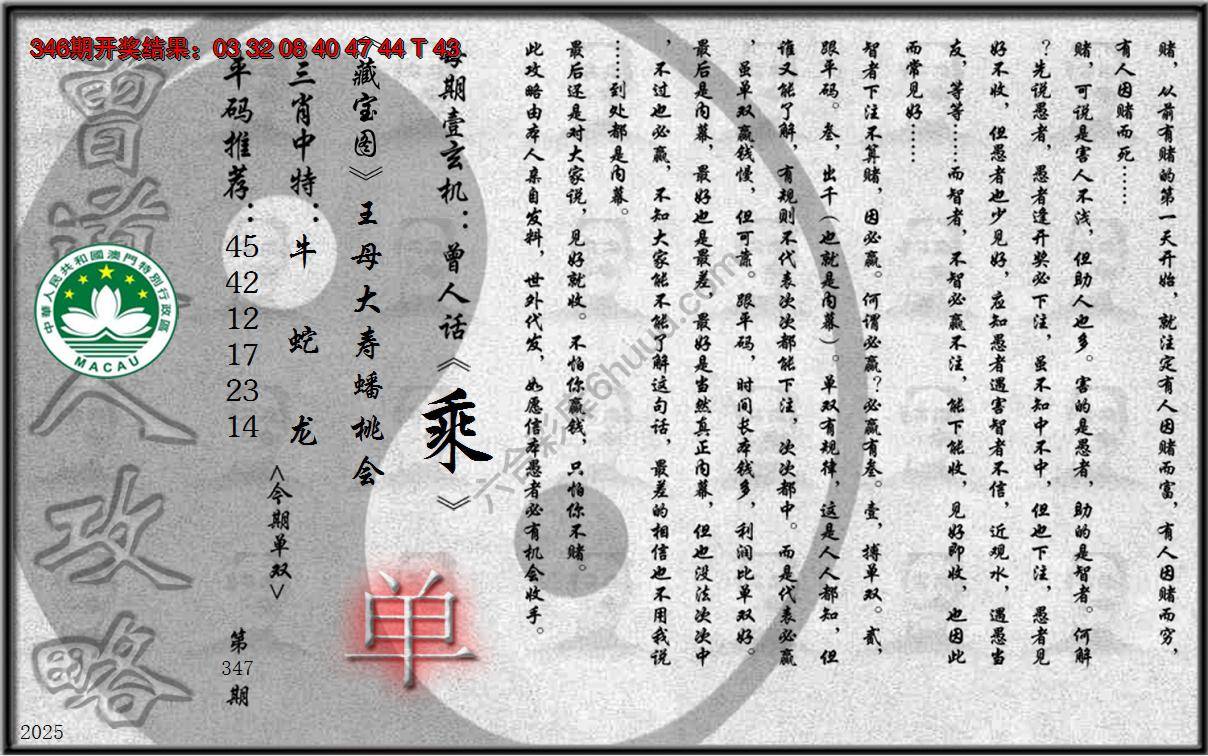 346期开奖结果：03 32 08 40 47 44 T 43
赌，从前有赌的第一天开始，就注定有人因赌而富，有人因赌而穷，
有人因赌而死……
赌，可说是害人不浅，但助人也多。害的是愚者，助的是智者。何解
？先说愚者，愚者逢开奖必下注，虽不知中不中，但也下注，愚者见
好不收，但愚者也少见好，应知愚者遇害智者不信，近观水，遇愚当
友，等等……而智者，不智必赢不注，能下能收，见好即收，也因此
而常见好……
智者下注不算赌，因必赢。何谓必赢？必赢有叁。壹，搏单双。贰，
跟平码。叁，出千（也就是内幕）。单双有规律，这是人人都知，但
谁又能了解，有规则不代表次次都能下注，次次都中。而是代表必赢
，虽单双赢钱慢，但可靠。跟平码，时间长本钱多，利润比单双好。
最后是内幕，最好也是最差，最好是当然真正内幕，但也没法次次中
，不过也必赢，不知大家能不能了解这句话，最差的相信也不用我说
……到处都是内幕。
最后还是对大家说，见好就收。不怕你赢钱，只怕你不赌。
此攻略由本人亲自发料，世外代发，如愿信本愚者必有机会收手。
每期壹玄机：曾人话《乘》
《藏宝图》王母大寿蟠桃会
单
三肖中特：牛 蛇 龙
<今期单双>
平码推荐：
45
42
12
17
23
14
第
347
期
曾道人攻略
中華人民共和國澳門特別行政區
MACAU
2025